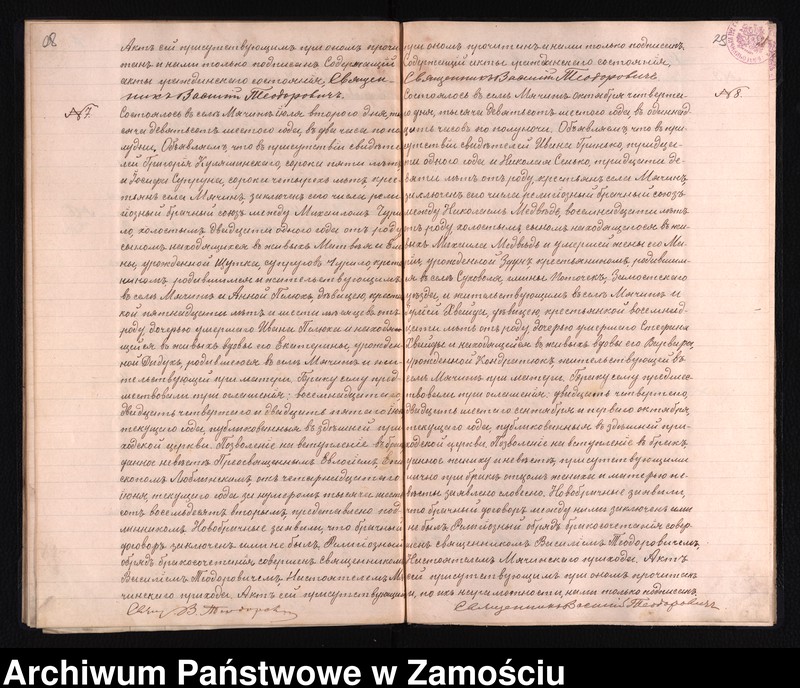 Актъ сей присутствующимъ при ономъ прочи-
танъ и нами только подписанъ. Содержащій
акты гражданскаго состоянія, Священ-
никъ Василій Теодоровичъ.
№ 7
Состоялось въ селѣ Мячинъ второго дня,
тысяча девятьсотъ шестого года, въ два часа по по-
лудни. Объявляемъ, что въ присутствіи свидѣте-
лей Григорія сорока пяти лѣтъ
и Іосифа Супруна, сорока четырехъ лѣтъ, крес-
тьянъ села Мячинъ, заключенъ сего числа рели-
гіозный брачный союзъ между Михаиломъ
холостымъ, двадцати одного года отъ роду
сыномъ находящихся въ живыхъ Матвѣя и
урожденной супруговъ
родившимся и жительствующимъ
въ селѣ Мячинъ и Анной дѣвицею, крестьян-
кой пятнадцати лѣтъ и шести мѣсяцевъ отъ
роду, дочерью умершаго Ивана и находя-
щейся въ живыхъ вдовы его Екатерины, урожден-
ной родившеюся въ селѣ Мячинъ и жи-
тельствующей при матери. Браку сему пред-
шествовали три оглашенія: восемнадцатаго,
двадцать четвертаго и двадцать пятаго
текущаго года, публикованныя въ здѣшней при-
ходской церкви. Позволеніе на вступленіе въ бракъ
данное невѣстѣ Преосвященнымъ Евлогіемъ, Епи-
скопомъ Люблинскимъ отъ четырнадцатаго
іюня текущаго года за нумеромъ тысяча шесть-
сотъ восемьдесятъ вторымъ, представлено под-
линникомъ. Новобрачные заявили, что брачный
договоръ заключенъ ими не былъ. Религіозный
обрядъ бракосочетанія, совершенъ священникомъ
Василіемъ Теодоровичемъ, Настоятелемъ Мя-
чинскаго прихода. Актъ сей присутствующимъ
Свящ. В. Теодорович
29
при ономъ прочитанъ и нами только подписанъ.
Содержащій акты гражданскаго состоянія,
Священникъ Василій Теодоровичъ
№ 8
Состоялось въ селѣ Мячинъ октября четверта-
го дня, тысяча девятьсотъ шестого года, въ одиннад-
цать часовъ по полуночи. Объявляемъ, что въ при-
сутствіи свидѣтелей Ивана тридца-
ти одного года и Николая Сенько, тридцати де-
вяти лѣтъ отъ роду, крестьянъ села Мячинъ,
заключенъ сего числа религіозный брачный союзъ
между Николаемъ Медвѣдь, восемнадцати лѣтъ
отъ роду, холостымъ, сыномъ находящагося въ жи-
выхъ Михаила Медвѣдь и умершей жены его Ма-
ріи, урожденной крестьяниномъ, родившим-
ся въ селѣ Суховоля, гмины Замостскаго
уѣзда, и жительствующимъ въ селѣ Мячинъ и
дѣвицею, крестьянкой восемнад-
цати лѣтъ отъ роду, дочерью умершаго Стефана
и находящейся въ живыхъ вдовы его Варвары,
урожденной Кондратюкъ, жительствующей въ
селѣ Мячинъ при матери. Браку сему предшес-
твовали три оглашенія: двадцать четвертаго,
двадцать шестаго сентября и перваго октября,
текущаго года, публикованныя въ здѣшней при-
ходской церкви. Позволеніе на вступленіе въ бракъ
данное жениху и невѣстѣ, присутствующими
лично при бракѣ отцомъ жениха и матерью не-
вѣсты заявлено словесно. Новобрачные заявили,
что брачный договоръ между ними заключенъ ими
не былъ. Религіозный обрядъ бракосочетанія совер-
шенъ священникомъ Василіемъ Теодоровичемъ,
Настоятелемъ Мячинскаго прихода. Актъ
сей присутствующимъ при ономъ прочитанъ
и, по ихъ неграмотности, нами только подписанъ.
Священникъ Василій Теодоровичъ
Archiwum Państwowe w Zamościu